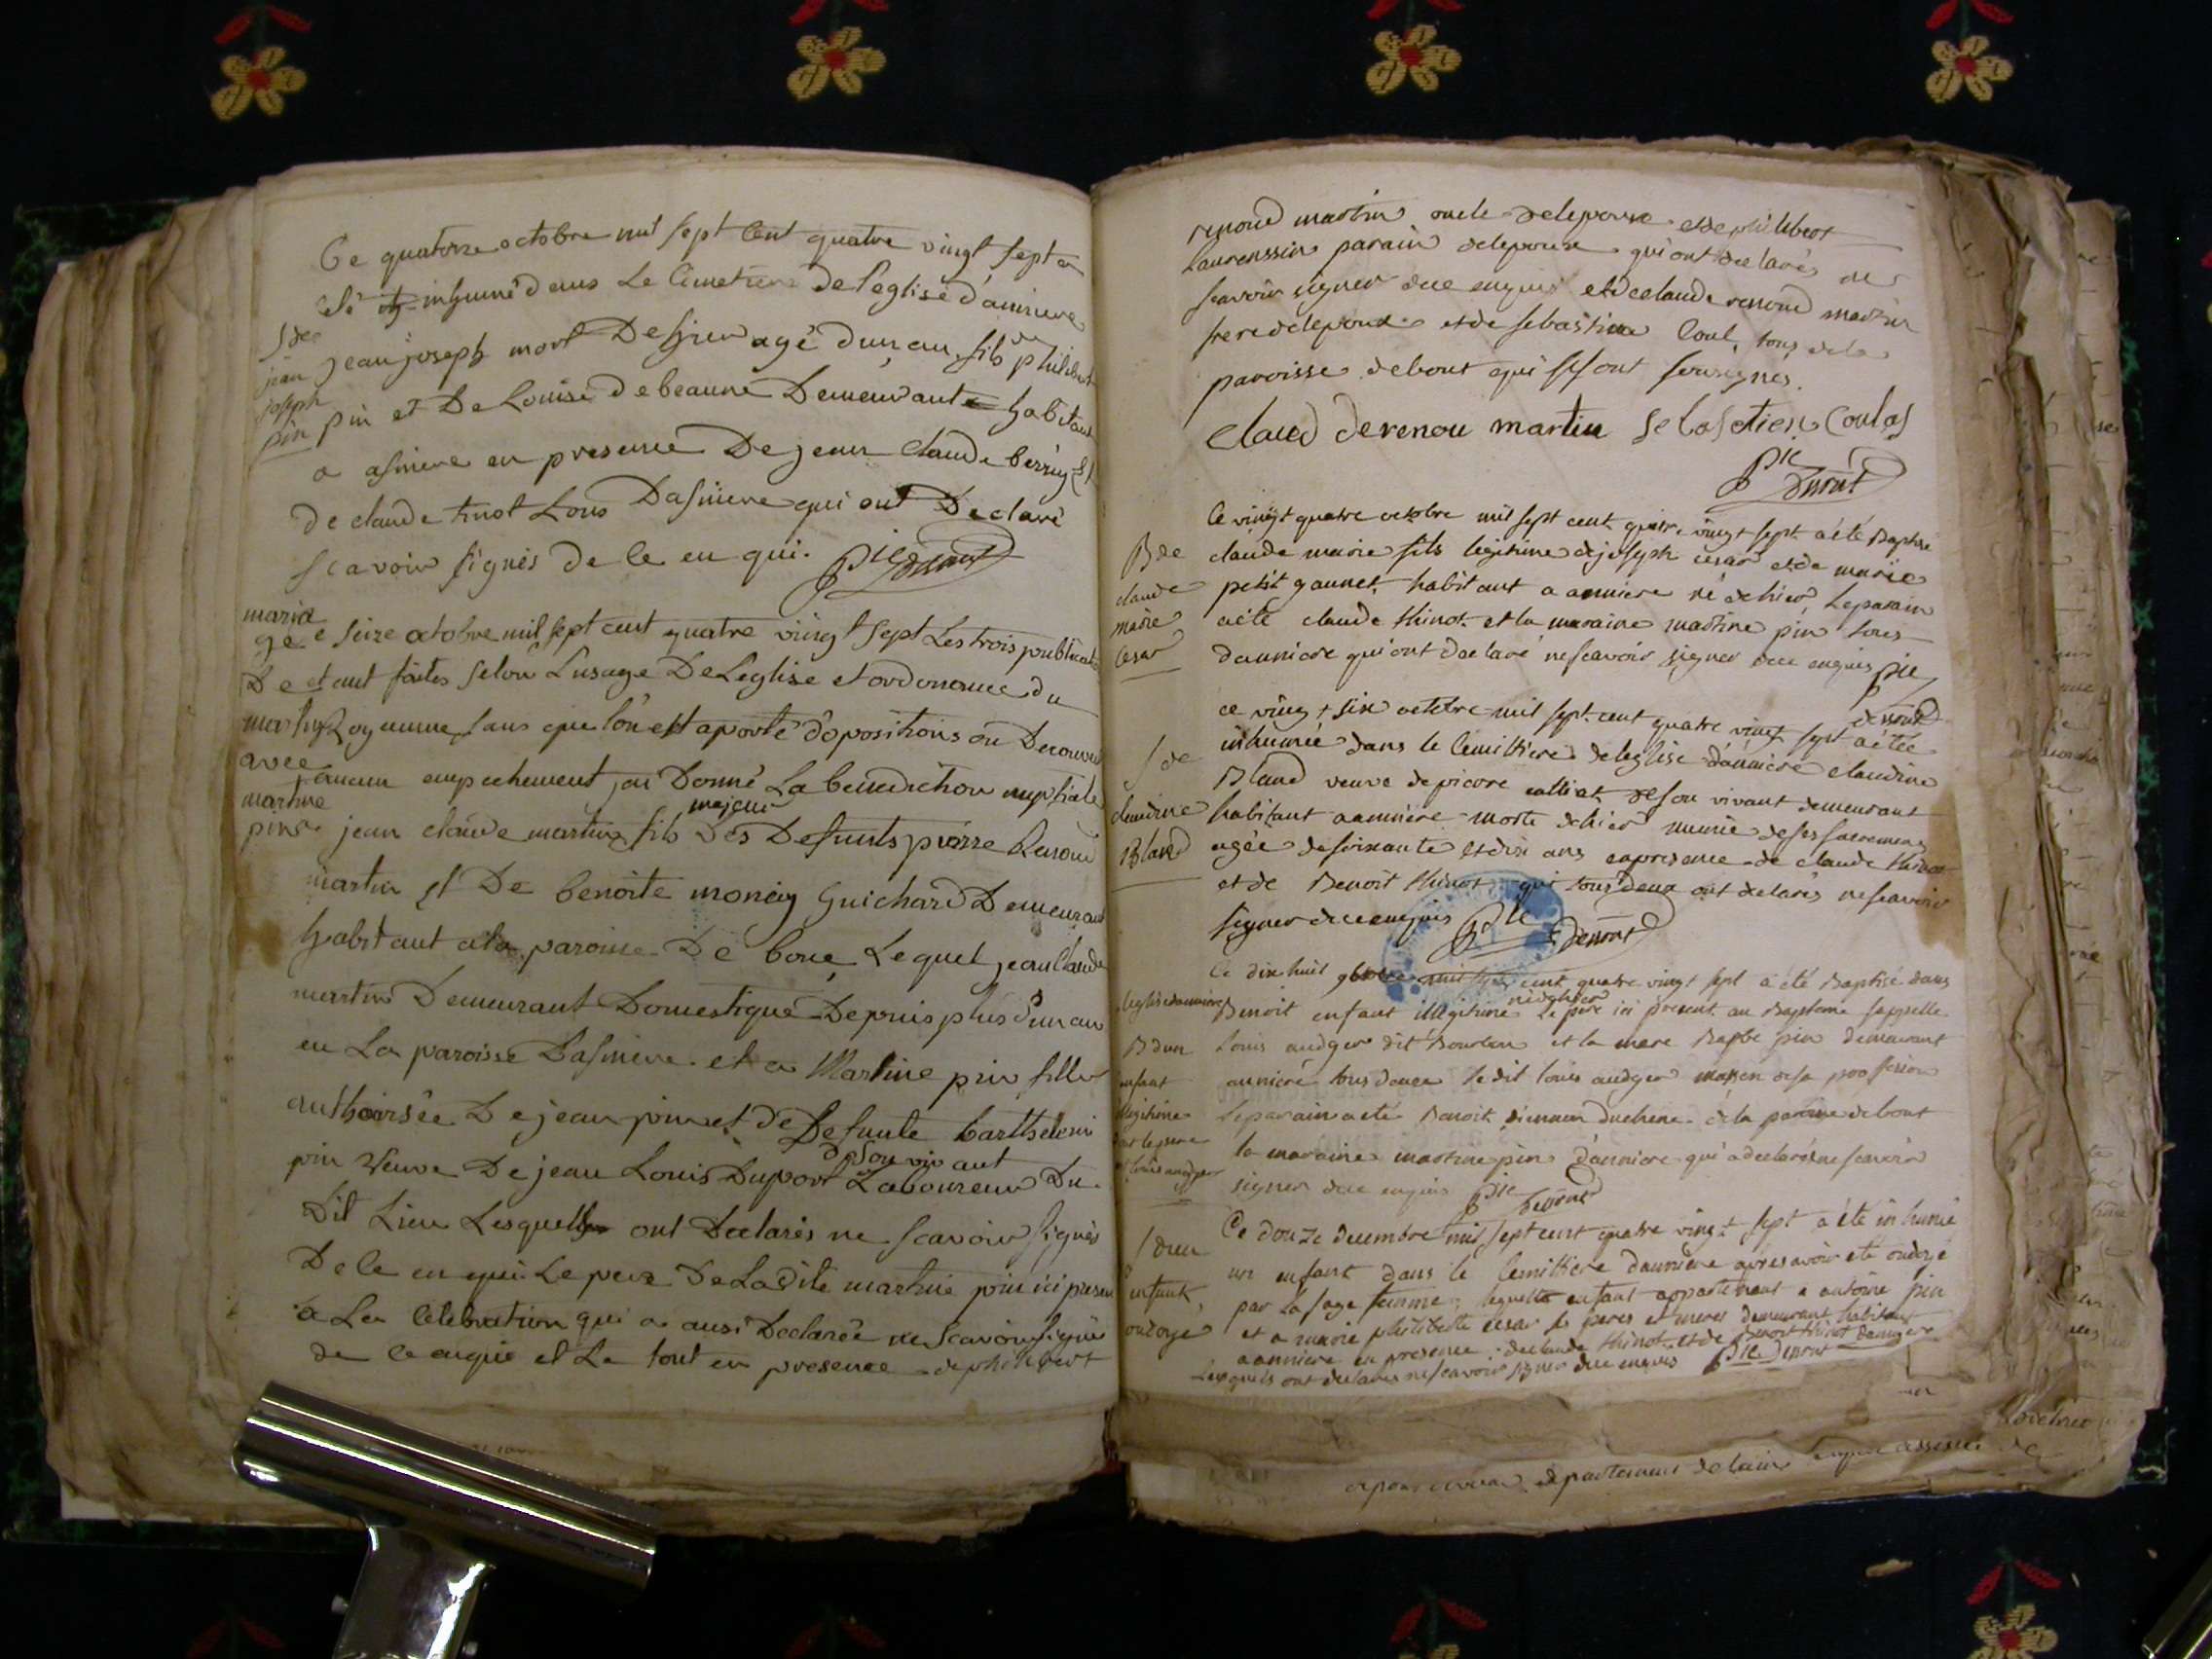 Ce quatorze octobre mil sept Cent quatre vingt sept a
eté inhumé dans Le Cimetiere de l'eglise d'aniere
jean joseph mort De hier agé d'un an, fils de philibert
pin et De Louise de beaune Demeurant habitant
a asniere en presence De jean claude berry et
de claude tinot tous D'asniere qui ont Declaré
scavoir signés de ce enqui. pic Denont
S de
jean
joseph
pin
Ce seize octobre mil sept cent quatre vingt sept Les trois publicat
etant faites selon L'usage De L'eglise et ordonance du
Royaume, sans que l'on est aporté d'opositions ou Decouvert
aucun empechement j'ai Donné La benediction nuptiale
majeur
jean claude martin fils Des Defunts pierre Renoud
martin et De benoite Guichard Demeurant
habitant a la paroisse De boue Lequel jean claude
martin Demeurant Domestique Depuis plus d'un an
en La paroisse D'asniere et a Martine pin fille
authorisée De jean pin et de Defunte barthelemi
de son vivant
pin veuve De jean Louis Duport Laboureur Du
Dit Lieu Lesquels ont Declarés ne scavoir signés
De ce enqui Le pere De La dite martine pin ici present
a La Celebration qui a aussi Declarée ne scavoir signé
de ce enquis et Le tout en presence de philibert
maria
ge
De
martin
avec
martine
pin
renoud martin oncle de l'epouse et de philibert
Laurenssin parain de l'epoux qui ont declarés ne
scavoir signer de ce enquis et de claude renoud martin
frere de l'epoux et de sebastien Coul, tous de la
paroisse de bout qui se sont sousignes.
claud derenou martin sebasetien Coulas
pic Denont
Ce vingt quatre octobre mil sept cent quatre vingt sept a été Baptisé
claude marie fils legitime de joseph cesar et de marie
petit gaunet habitant a anniere né de hier, Le parain
a été claude thinot et la maraine martine pin tous
d'anniere qui ont declaré ne scavoir signer de ce enquis pic
Denont
B de
claude
marie
Cesar
ce vingt six octobre mil sept cent quatre vingt sept a été
inhumée dans le cimittiere de l'eglise d'anniere claudine
Bland veuve de pierre de son vivant demeurant
habitant a anniere morte de hier munie de ses sacremens
agée de soixante et dix ans en presence de claude thinot
et de Benoit thinot qui tous deux ont declarés ne scavoir
signer de ce enquis pic Denont
S de
claudine
Bland
Ce dix huit 9bre mil sept cent quatre vingt sept a été Baptisé dans
l'eglise d'anniere Benoit enfant illegitime né d'hier Le pere ici present au Bapteme s'appelle
Louis audger dit Bourbon et la mere Barbe pin demeurant
anniere tous deux le dit louis audger masson de sa profession
le parain a été Benoit duchene de la paroisse de bout
la maraine martine pin d'anniere qui a declaré ne scavoir
signer de ce enquis pic Denont
B d'un
enfant
illegitime
dont le pere
est louis audger
Ce douze decembre mil sept cent quatre vingt sept a été inhumé
un enfant dans le cimittiere d'anniere apres avoir eté ondoyé
par la sage femme; lequelle enfant appartenant a antoine pin
et a marie philiberte cesar ses peres et meres demeurant habitant
a anniere en presence de claude thinot et de Benoit thinot d'anniere
Lesquels ont declarés ne scavoir signer de ce enquis pic Denont
S d'un
enfant
ondoyé
departement de l'ain